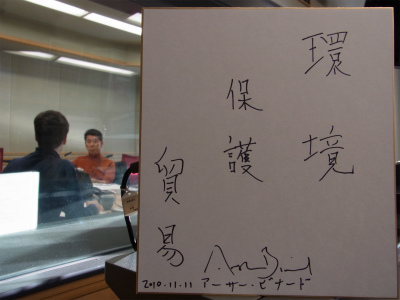 環境
保護
貿易
Arthur Binard
2010.11.11 アーサー・ビナード